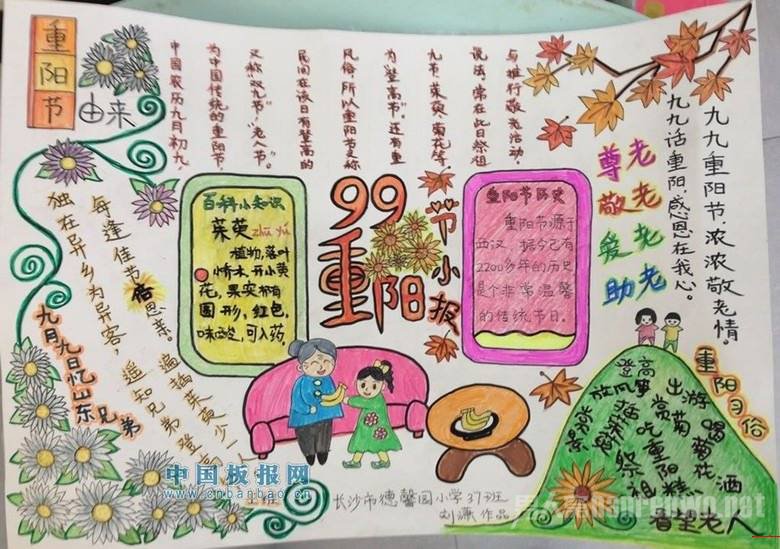 重阳节
由来
中国农历九月初九，
为中国传统的重阳节，
又称"双九节"，"老人节"。
民间在该日有登高的
风俗，所以重阳节又称
为"登高节"。还有重
九节、茱萸、菊花等
说法，常在此日祭祖
与推行敬老活动。
九九重阳节，浓浓敬老情。
九九话重阳，感恩在我心。
尊老
敬老
爱老
助老
百科小知识
茱萸 zhū yú
植物，落叶
小乔木，开小黄
花，果实椭
圆形，红色，
味酸，可入药。
99
重阳
节小报
重阳节历史
重阳节源于
西汉，据今已有
2200多年的历史
是个非常温馨
的传统节日。
九月九日忆山东兄弟
独在异乡为异客，
每逢佳节倍思亲。
遥知兄弟登高
遍插茱萸少一人
重阳习俗
登高
放风筝
出游
赏菊
喝菊花酒
吃重阳糕
祭祖
看望老人
长沙市德馨园小学37班
刘 作品
中国板报网
www.cnbanbao.cn